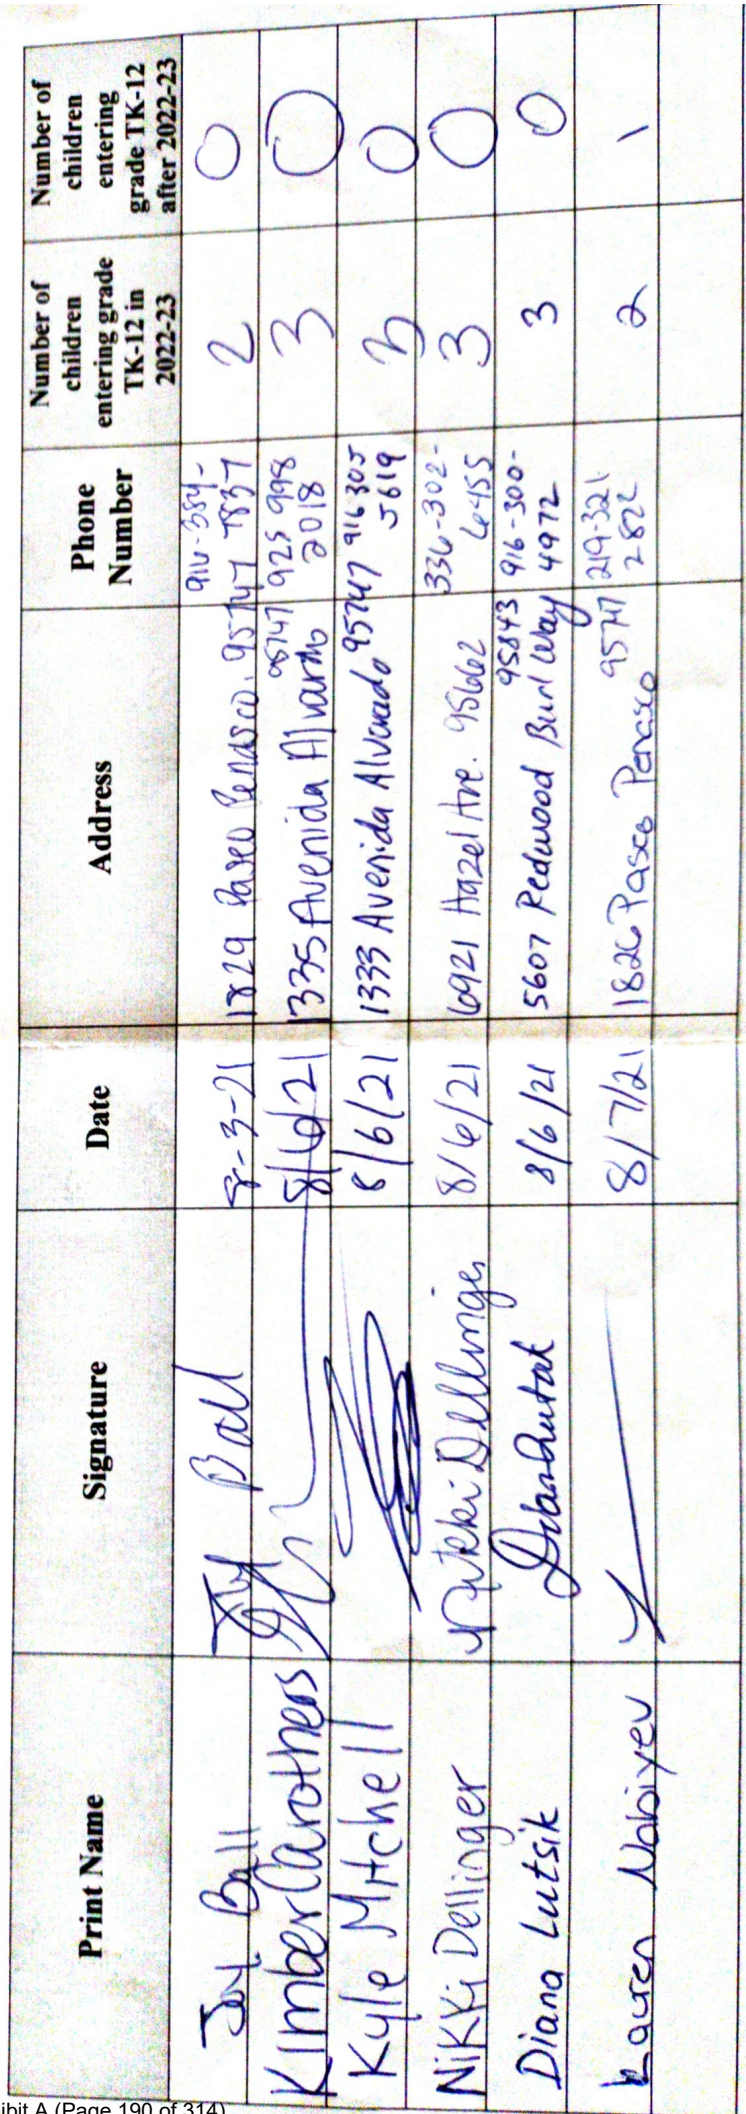 Print Name Signature Date Address Phone Number Number of children entering grade TK-12 in 2022-23 Number of children entering grade TK-12 after 2022-23
Joy Ball Joy Ball 8-3-21 1829 Paseo Penasco. 95747 916-384-7837 2 0
Kimber Carothers 8/6/21 1335 Avenida Alvarado 95747 925 998 2018 3 0
Kyle Mitchell 8/6/21 1333 Avenida Alvarado 95747 916 305 5619 3 0
Nikki Dellinger Nikki Dellinger 8/6/21 6921 Hazel Ave. 95662 336-302-6455 3 0
Diana Lutsik 8/6/21 5607 Redwood Burl Way 95843 916-300-4972 3 0
Lauren Nabiyev 8/7/21 1826 Paseo 95747 219-321-2822 2 1
ibit A (Page 190 of 314)